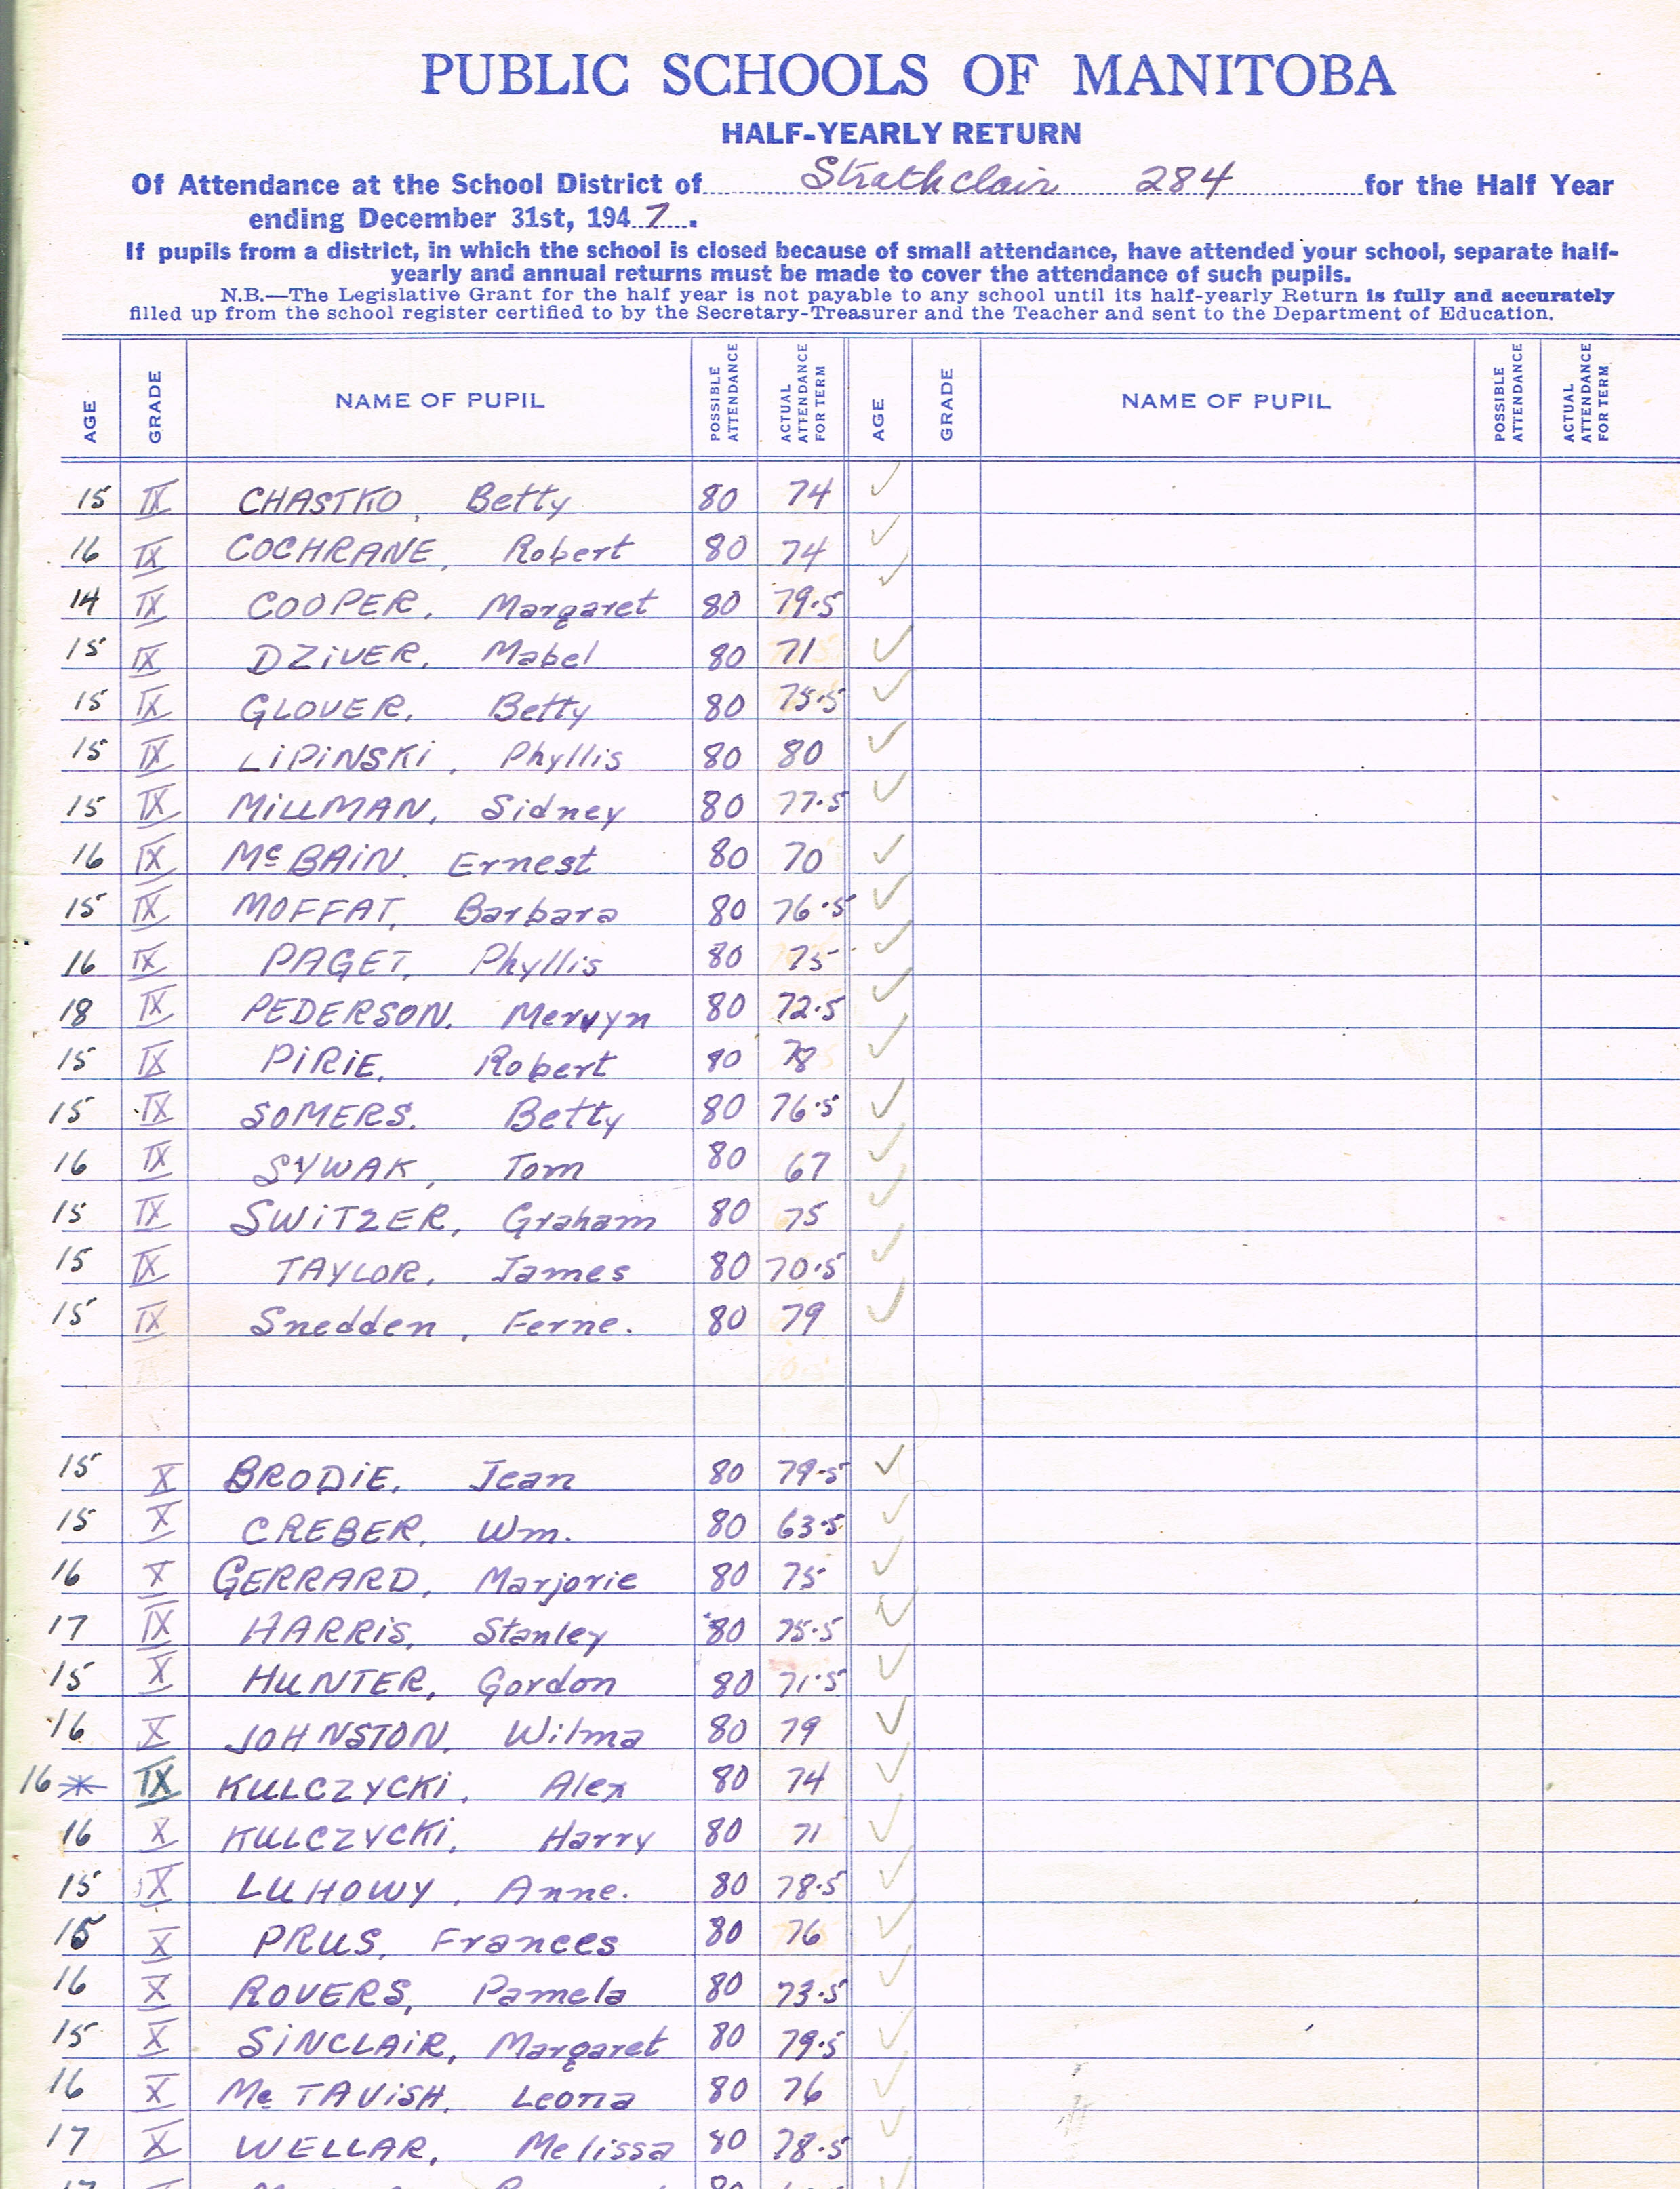 PUBLIC SCHOOLS OF MANITOBA
HALF-YEARLY RETURN
Of Attendance at the School District of Strathclair 284 for the Half Year
ending December 31st, 1947.
If pupils from a district, in which the school is closed because of small attendance, have attended your school, separate half-
yearly and annual returns must be made to cover the attendance of such pupils.
N.B.—The Legislative Grant for the half year is not payable to any school until its half-yearly Return is fully and accurately
filled up from the school register certified to by the Secretary-Treasurer and the Teacher and sent to the Department of Education.
AGE GRADE NAME OF PUPIL POSSIBLE ATTENDANCE ACTUAL ATTENDANCE FOR TERM AGE GRADE NAME OF PUPIL POSSIBLE ATTENDANCE ACTUAL ATTENDANCE FOR TERM
15 IX CHASTKO, Betty 80 74 ✓
16 IX COCHRANE, Robert 80 74 ✓
14 IX COOPER, Margaret 80 79.5 ✓
15 IX DZiVER, Mabel 80 71 ✓
15 IX GLOVER, Betty 80 75.5 ✓
15 IX LiPiNSKi, Phyllis 80 80 ✓
15 IX MiLLMAN, Sidney 80 77.5 ✓
16 IX McBAiN. Ernest 80 70 ✓
15 IX MOFFAT, Barbara 80 76.5 ✓
16 IX PAGET, Phyllis 80 75 ✓
18 IX PEDERSON. Mervyn 80 72.5 ✓
15 IX PiRiE, Robert 80 78 ✓
15 IX SOMERS. Betty 80 76.5 ✓
16 IX SYWAK, Tom 80 67 ✓
15 IX SWiTZER, Graham 80 75 ✓
15 IX TAYLOR, James 80 70.5 ✓
15 IX Snedden, Ferne. 80 79 ✓
15 X BRODiE, Jean 80 79.5 ✓
15 X CREBER, Wm. 80 63.5 ✓
16 X GERRARD, Marjorie 80 75 ✓
17 IX HARRiS, Stanley 80 75.5 ✓
15 X HUNTER, Gordon 80 71.5 ✓
16 X JOHNSTON, Wilma 80 79 ✓
16 * IX KULCZYCKi, Alex 80 74 ✓
16 X KULCZYCKi, Harry 80 71 ✓
15 X LUHOWY, Anne. 80 78.5 ✓
15 X PRUS, Frances 80 76 ✓
16 X ROVERS, Pamela 80 73.5 ✓
15 X SiNCLAiR, Margaret 80 79.5 ✓
16 X McTAViSH, Leona 80 76 ✓
17 X WELLAR, Melissa 80 78.5 ✓
17 80